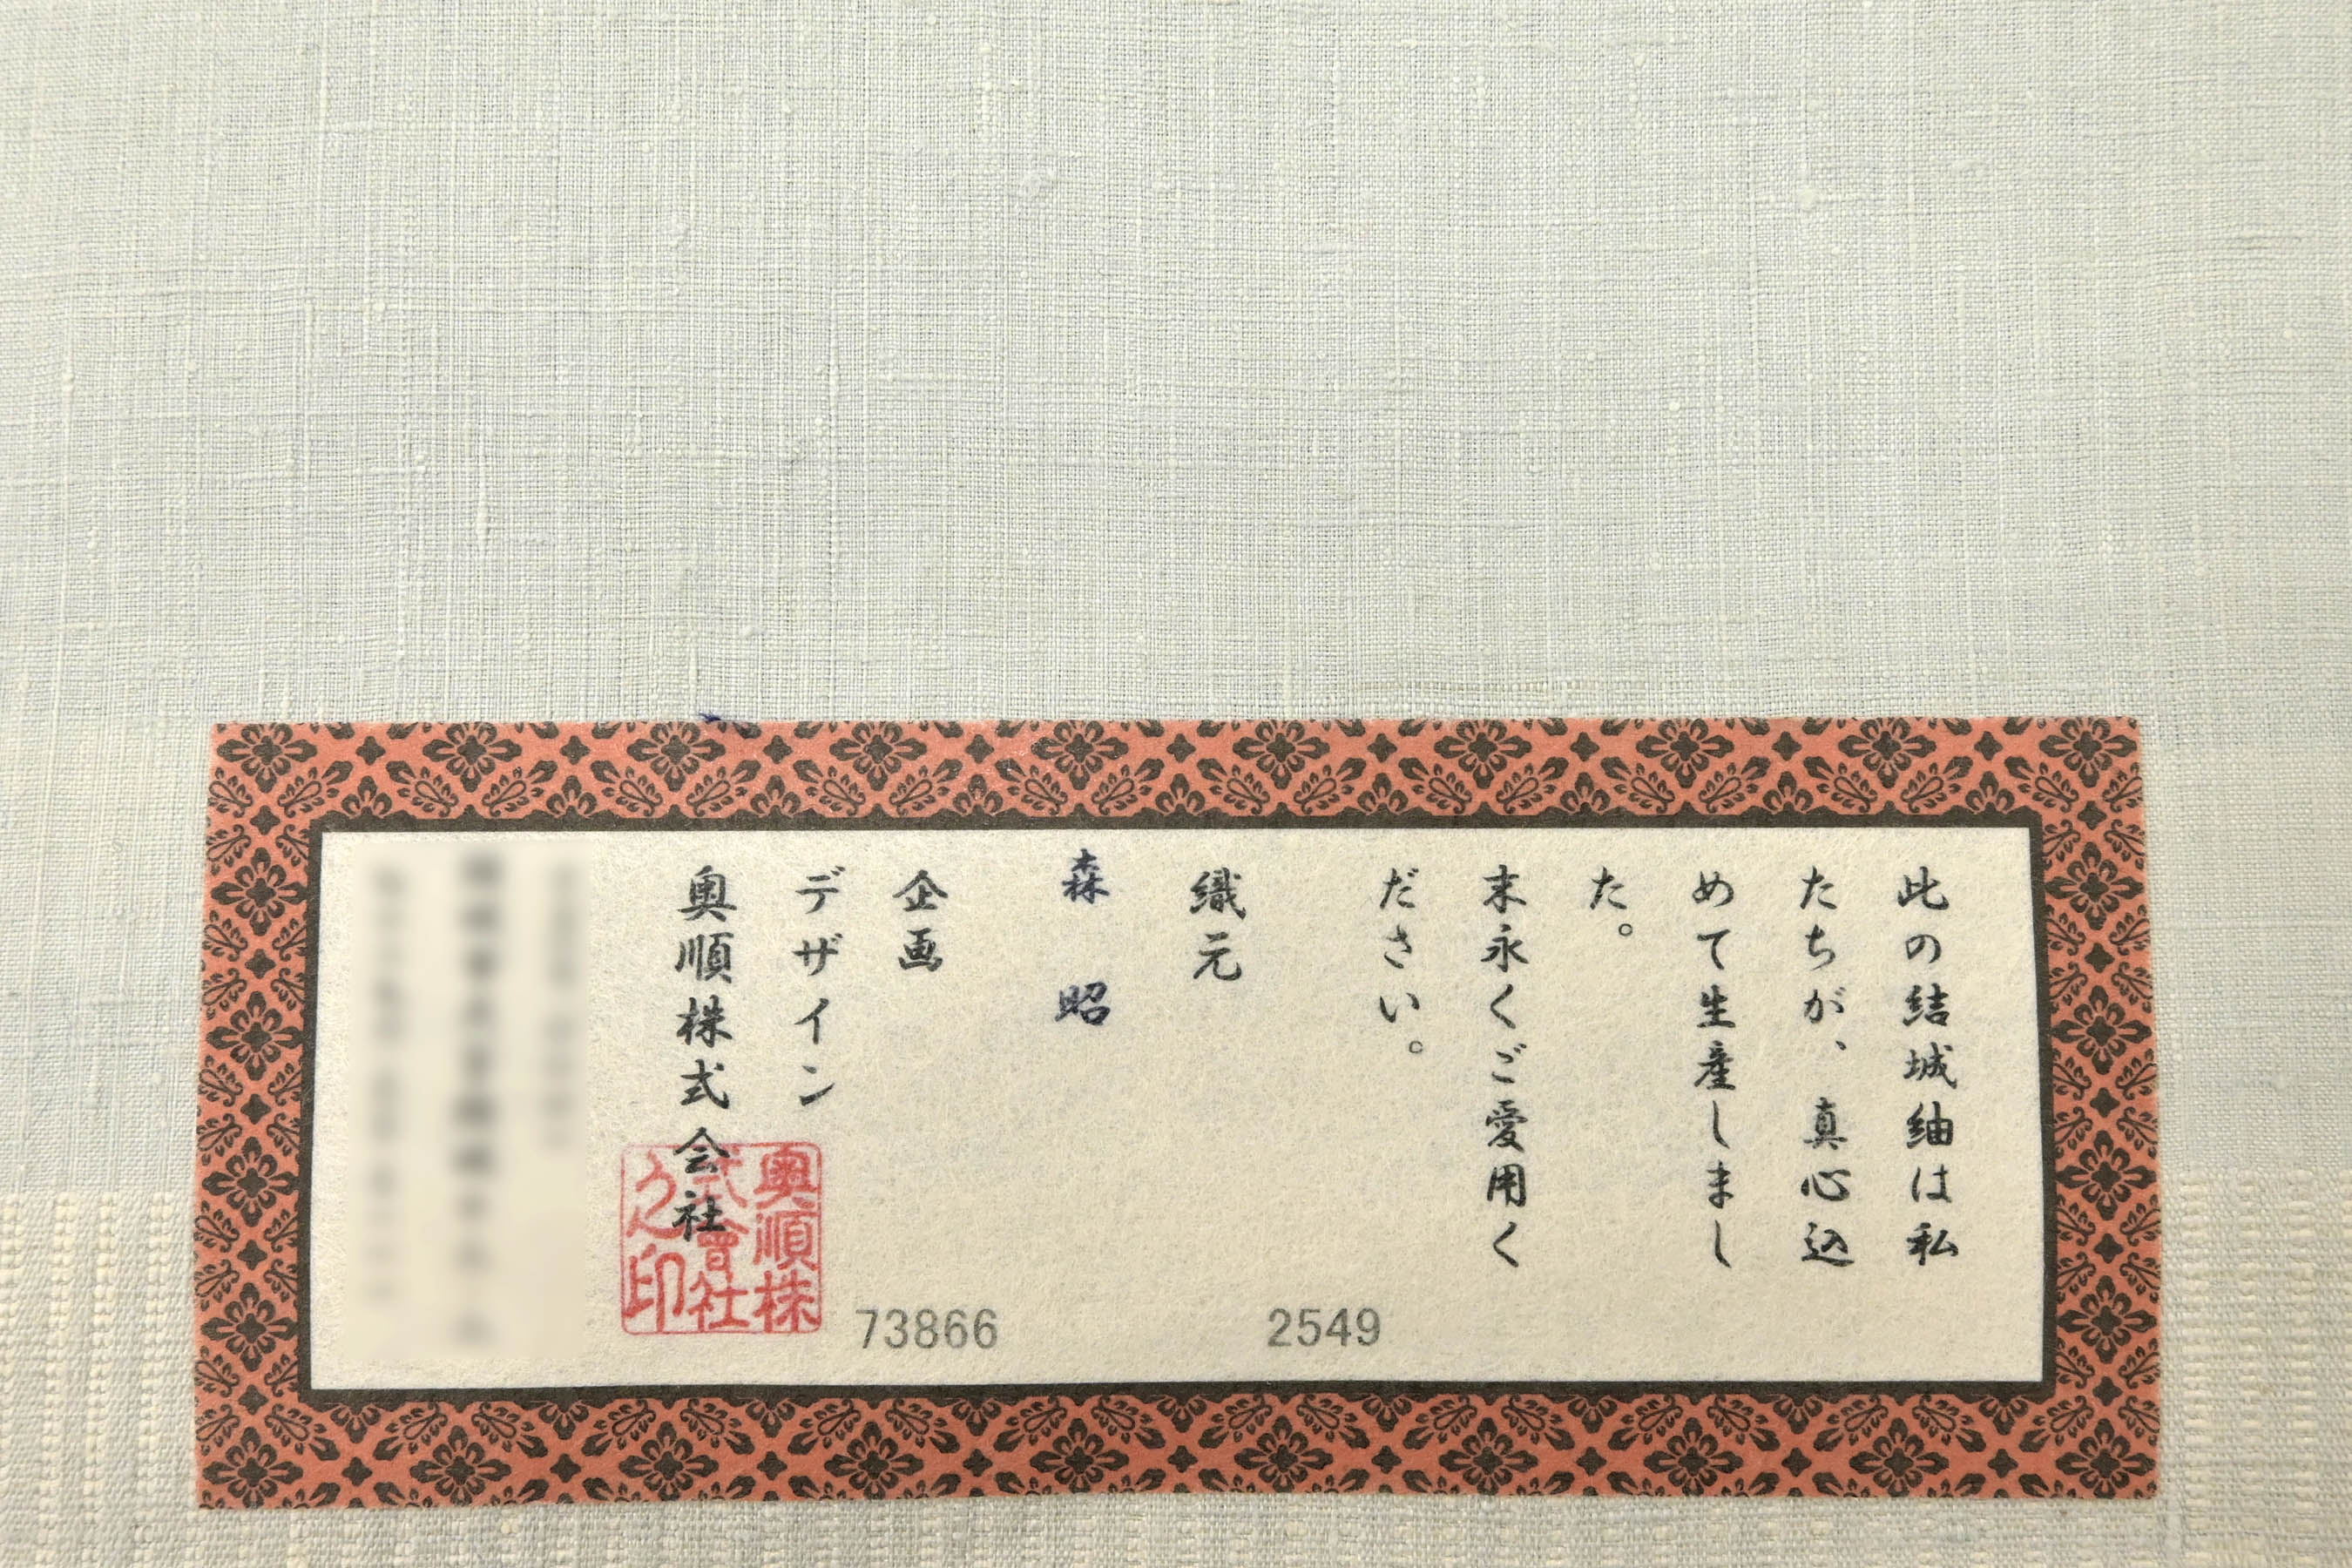 此の結城紬は私
たちが、真心込
めて生産しまし
た。
末永くご愛用く
ださい。
織元
森 昭
企画
デザイン
奥順株式会社
奥順株
式會社
之印
2549
73866